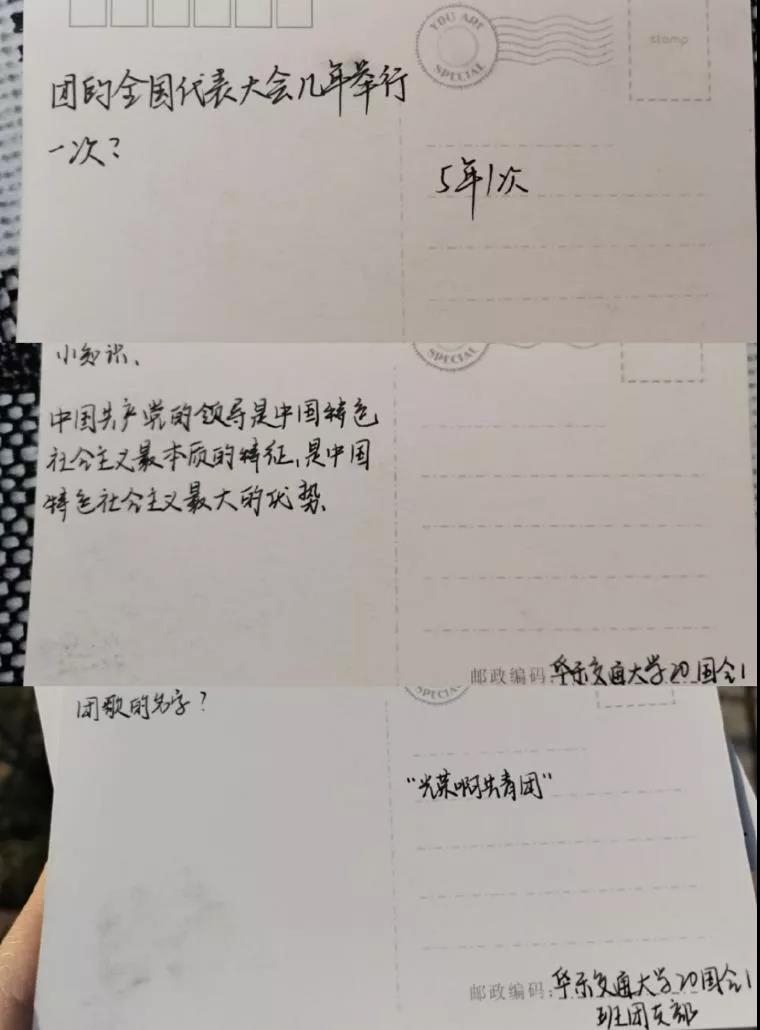 YOU ARE
SPECIAL
stamp
团的全国代表大会几年举行
一次?
5年1次
小知识、
SPECIAL
中国共产党的领导是中国特色
社会主义最本质的特征,是中国
特色社会主义最大的优势、
邮政编码:华东交通大学20国会1
团歌的名字?
SPECIAL
"光荣啊共青团"
邮政编码:华东交通大学20国会1
班团支部